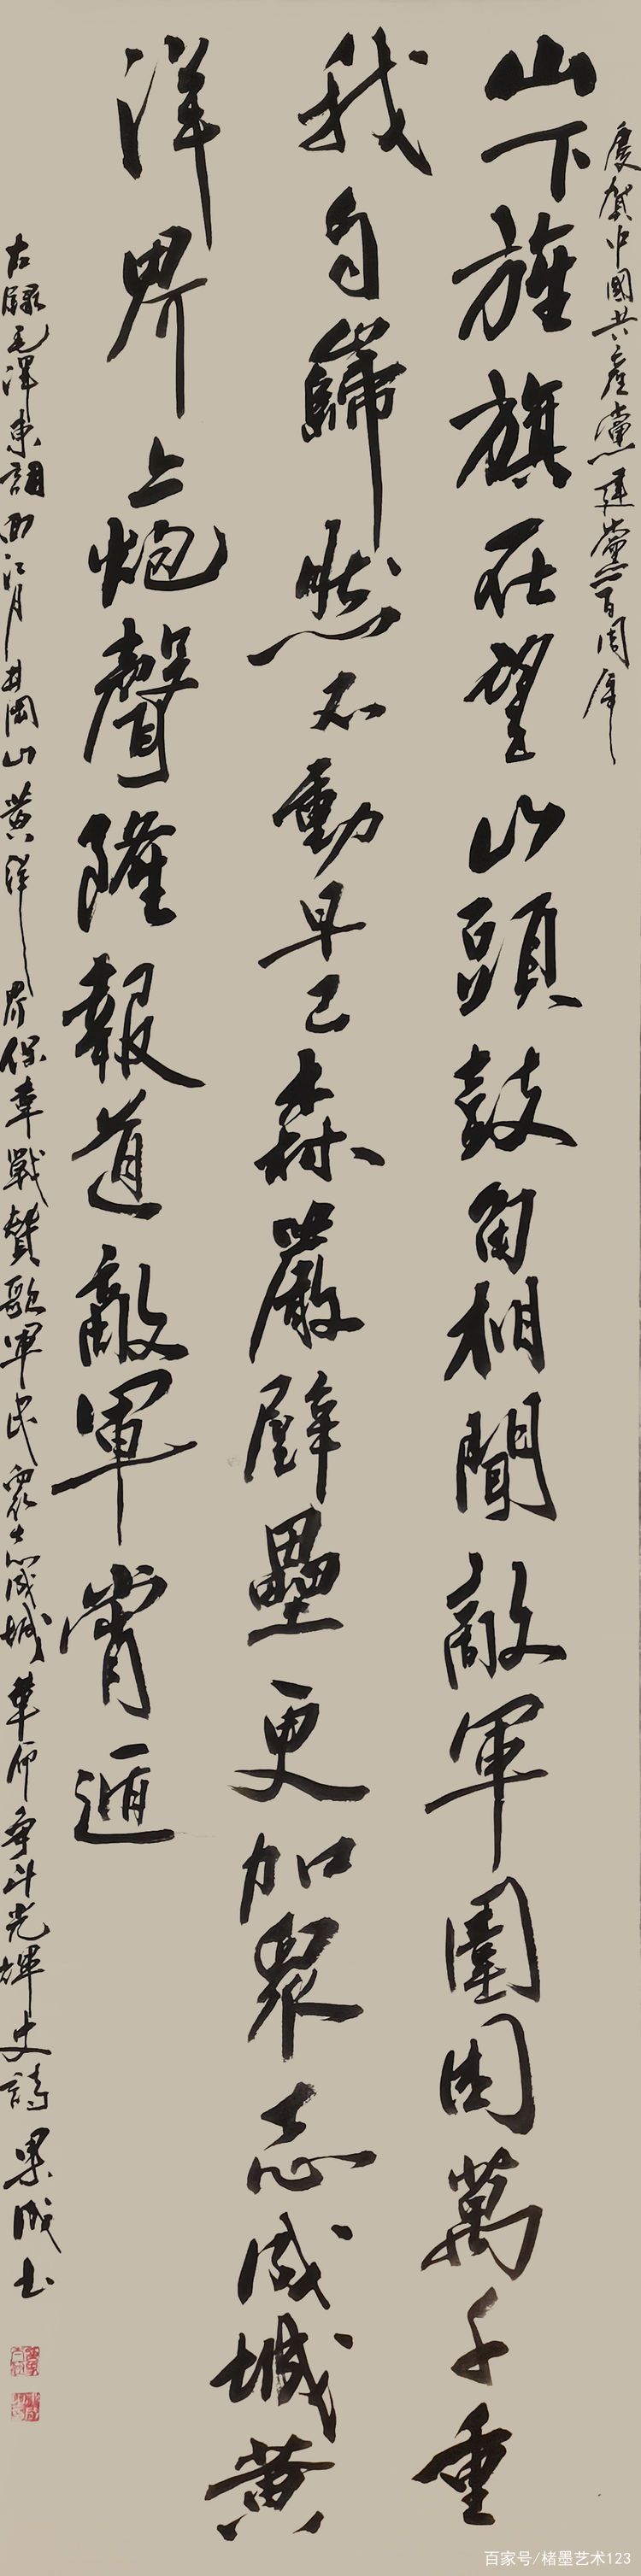 慶賀中國共產黨建黨百周年
山下旌旗在望山頭鼓角相聞敵軍圍困萬千重
我自巋然不動早已森嚴壁壘更加眾志成城黃
洋界上炮聲隆報道敵軍宵遁
右錄毛澤東詞西江月井岡山黃洋界保韋戰贊歌軍民眾志成城革命爭斗光輝史詩果成书
百家号/楮墨艺术123